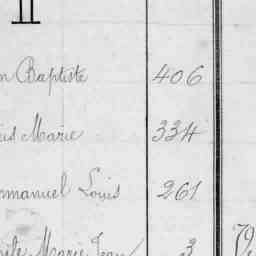 II
n Baptiste 406
is Marie 334
mmanuel Louis 261
Marie Jean 3